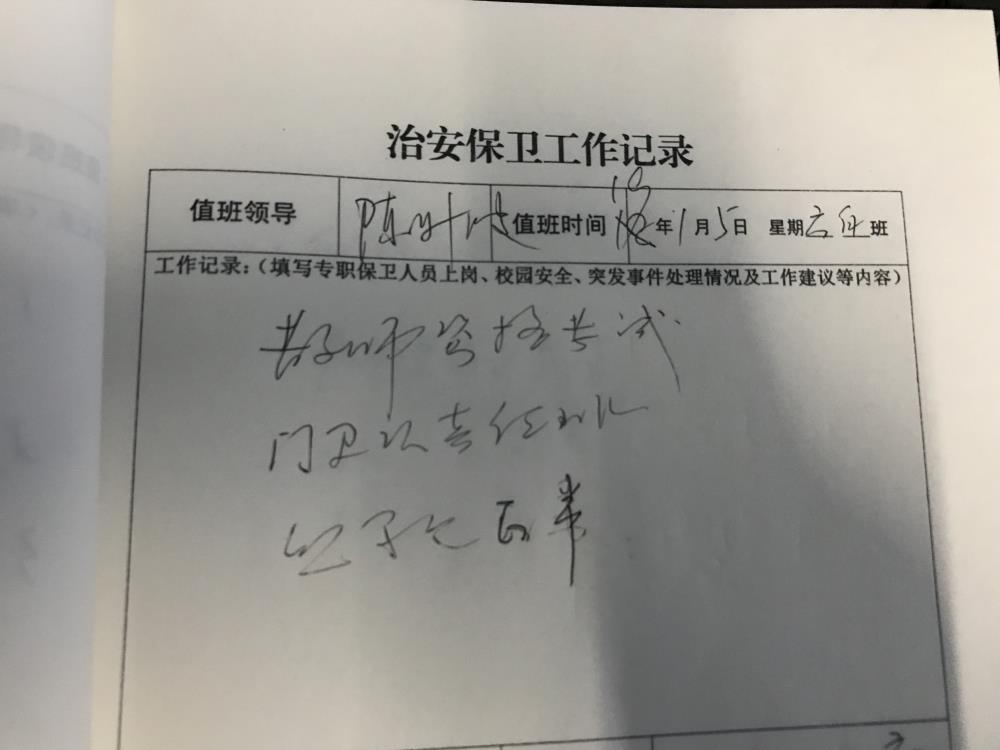 治安保卫工作记录
值班领导 陈 值班时间 19年1月5日 星期六 班
工作记录:(填写专职保卫人员上岗、校园安全、突发事件处理情况及工作建议等内容)
教师资格考试
门卫认责任
正常